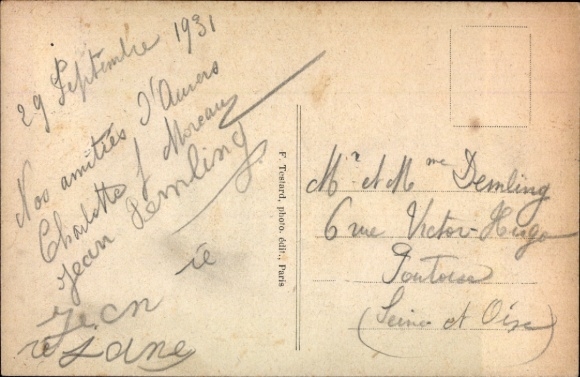 29 Septembre 1931
Nos amitiés d'Auvers
Charlotte J Moreau
Jean Demling
Jean
Liane
F. Testard, photo. édit., Paris
Mr et Mme Demling
6 rue Victor-Hugo
Pontoise
(Seine et Oise)